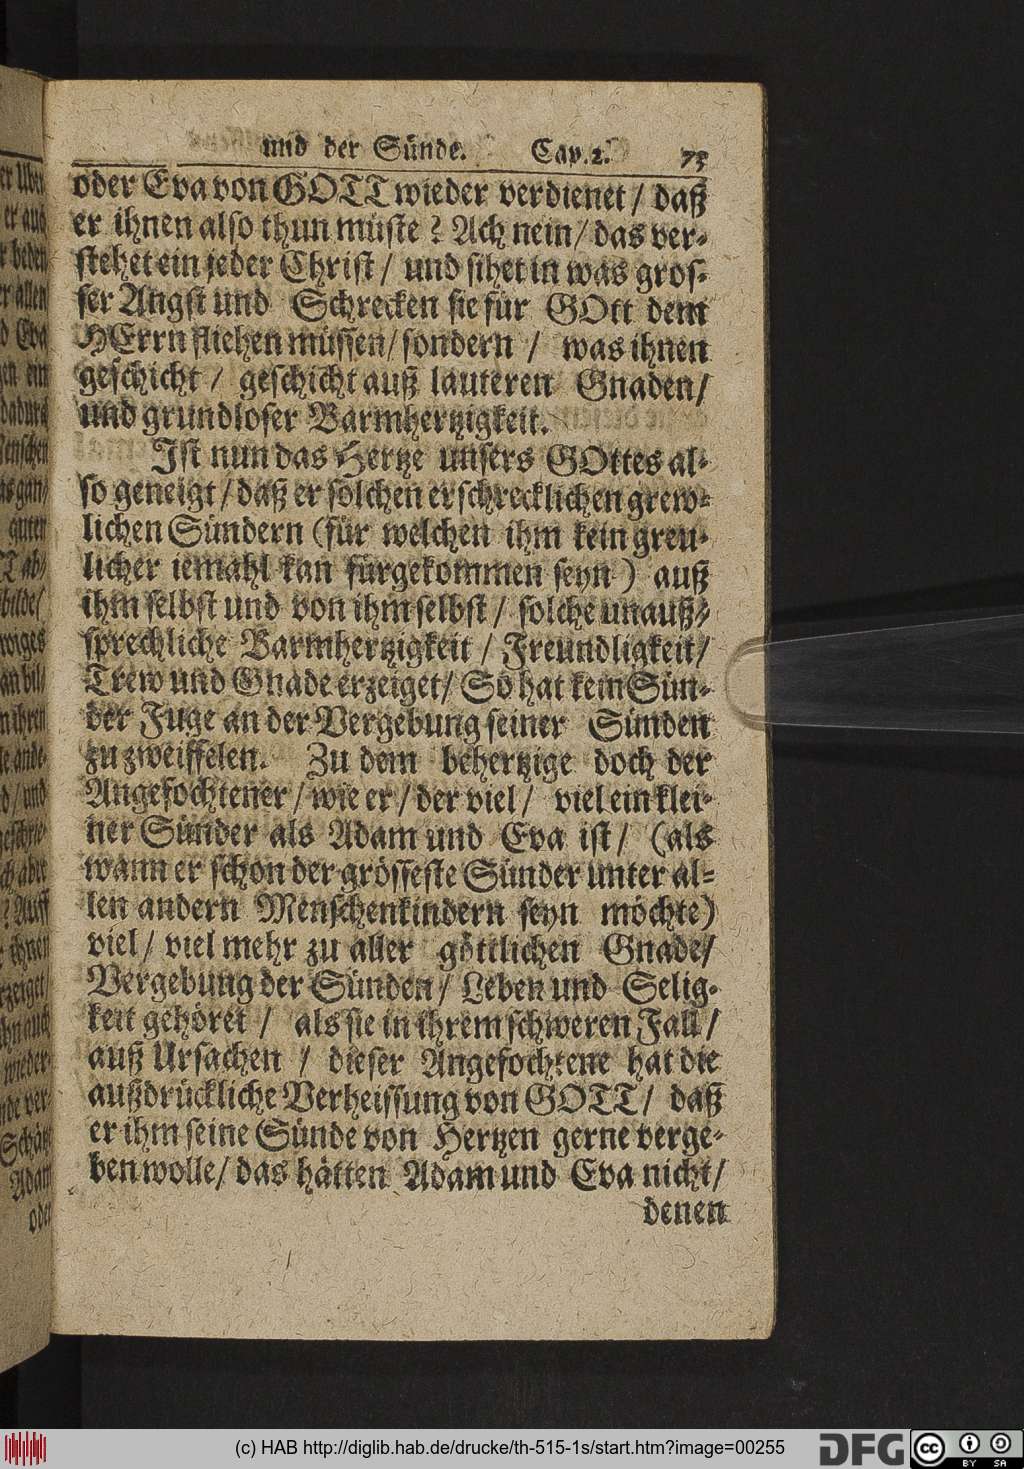 und der Sünde. Cap. 2. 75
oder Eva von GOTT wieder verdienet / daß
er ihnen also thun müste? Ach nein / das ver-
stehet ein jeder Christ / und sihet in was gros-
ser Angst und Schrecken sie für GOtt dem
HErrn fliehen müssen / sondern / was ihnen
geschicht / geschicht auß lauteren Gnaden /
und grundloser Barmhertzigkeit.
Ist nun das Hertze unsers GOttes al-
so geneigt / daß er solchen erschrecklichen grew-
lichen Sündern (für welchen ihm kein greu-
licher iemahl kan fürgekommen seyn) auß
ihm selbst und von ihm selbst / solche unauß-
sprechliche Barmhertzigkeit / Freundligkeit /
Trew und Gnade erzeiget / So hat kein Sün-
der Fuge an der Vergebung seiner Sünden
zu zweiffelen. Zu dem behertzige doch der
Angefochtener / wie er / der viel / viel ein klei-
ner Sünder als Adam und Eva ist / (als
wann er schon der grösseste Sünder unter al-
len andern Menschenkindern seyn möchte)
viel / viel mehr zu aller göttlichen Gnade /
Vergebung der Sünden / Leben und Selig-
keit gehöret / als sie in ihrem schweren Fall /
auß Ursachen / dieser Angefochtene hat die
außdrückliche Verheissung von GOTT / daß
er ihm seine Sünde von Hertzen gerne verge-
ben wolle / das hätten Adam und Eva nicht /
denen
(c) HAB http://diglib.hab.de/drucke/th-515-1s/start.htm?image=00255
DFG
cc BY SA